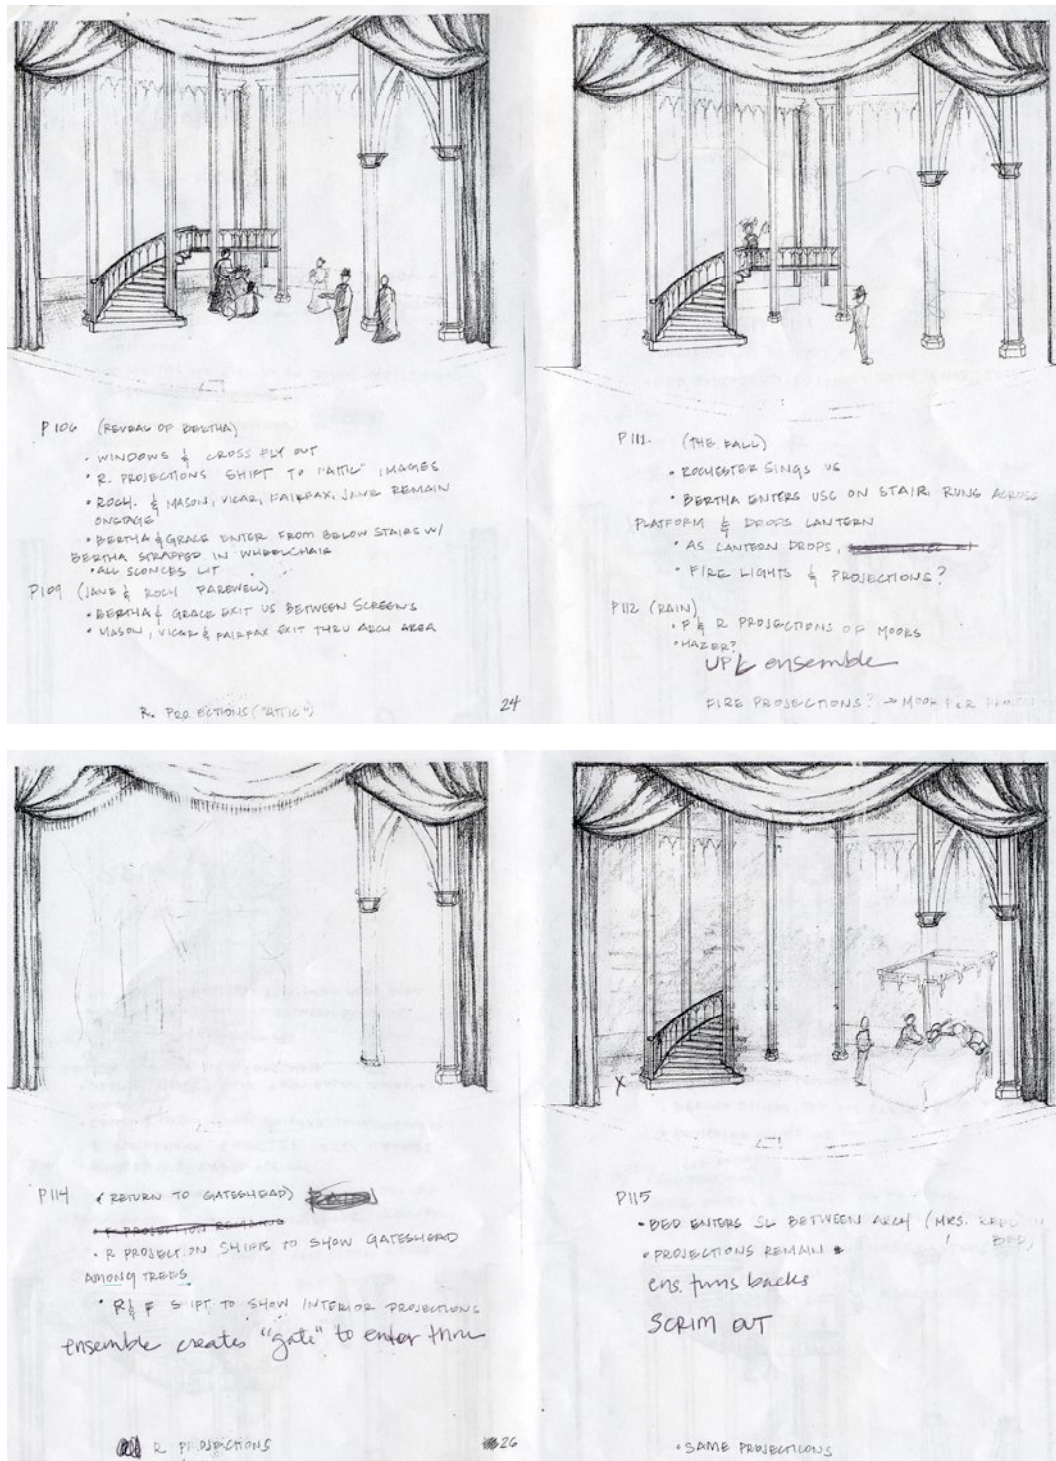 P 106 (REVEAL OF BERTHA)
• WINDOWS & CROSS FLY OUT
• R. PROJECTIONS SHIFT TO "ATTIC" IMAGES
• ROCH. & MASON, VICAR, FAIRFAX, JANE REMAIN
ONSTAGE
• BERTHA & GRACE ENTER FROM BELOW STAIRS W/
BERTHA STRAPPED IN WHEELCHAIR
• ALL SCONCES LIT
P109 (JANE & ROCH FAREWELL)
• BERTHA & GRACE EXIT US BETWEEN SCREENS
• MASON, VICAR & FAIRFAX EXIT THRU ARCH AREA
R. PROJECTIONS ("ATTIC")
24
P 111. (THE FALL)
• ROCHESTER SINGS US
• BERTHA ENTERS USC ON STAIR, RUNS ACROSS
PLATFORM & DROPS LANTERN
• AS LANTERN DROPS,
• FIRE LIGHTS & PROJECTIONS?
P112 (RAIN)
• F & R PROJECTIONS OF MOORS
• HAZER?
UPL ensemble
FIRE PROJECTIONS? → MOOR F & R
P114 (RETURN TO GATESHEAD)
• F PROJECTION REMAINS
• R PROJECTION SHIFTS TO SHOW GATESHEAD
AMONG TREES
• R & F SHIFT TO SHOW INTERIOR PROJECTIONS
ensemble creates "gate" to enter thru
R PROJECTIONS
26
P115
• BED ENTERS SL BETWEEN ARCH (MRS. REED IN
BED)
• PROJECTIONS REMAIN
ens. turns backs
SCRIM OUT
• SAME PROJECTIONS
X